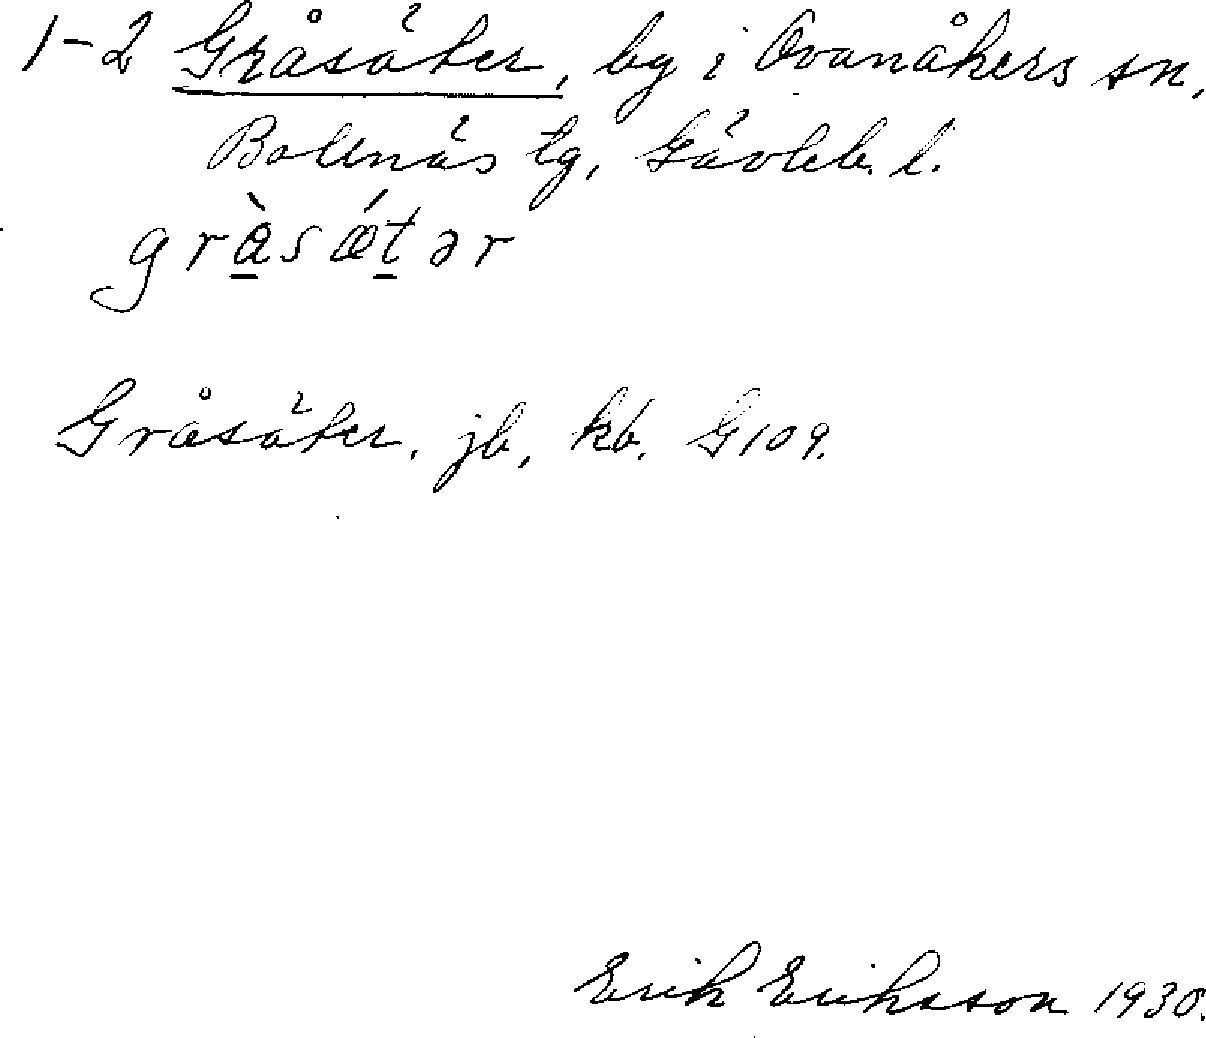 1-2 Gråsäter, by i Ovanåkers sn,
Bollnäs tg, Gävleb. l.
gràsǽtər
Gråsäter, jb, kb. G109.
Erik Eriksson 1930.